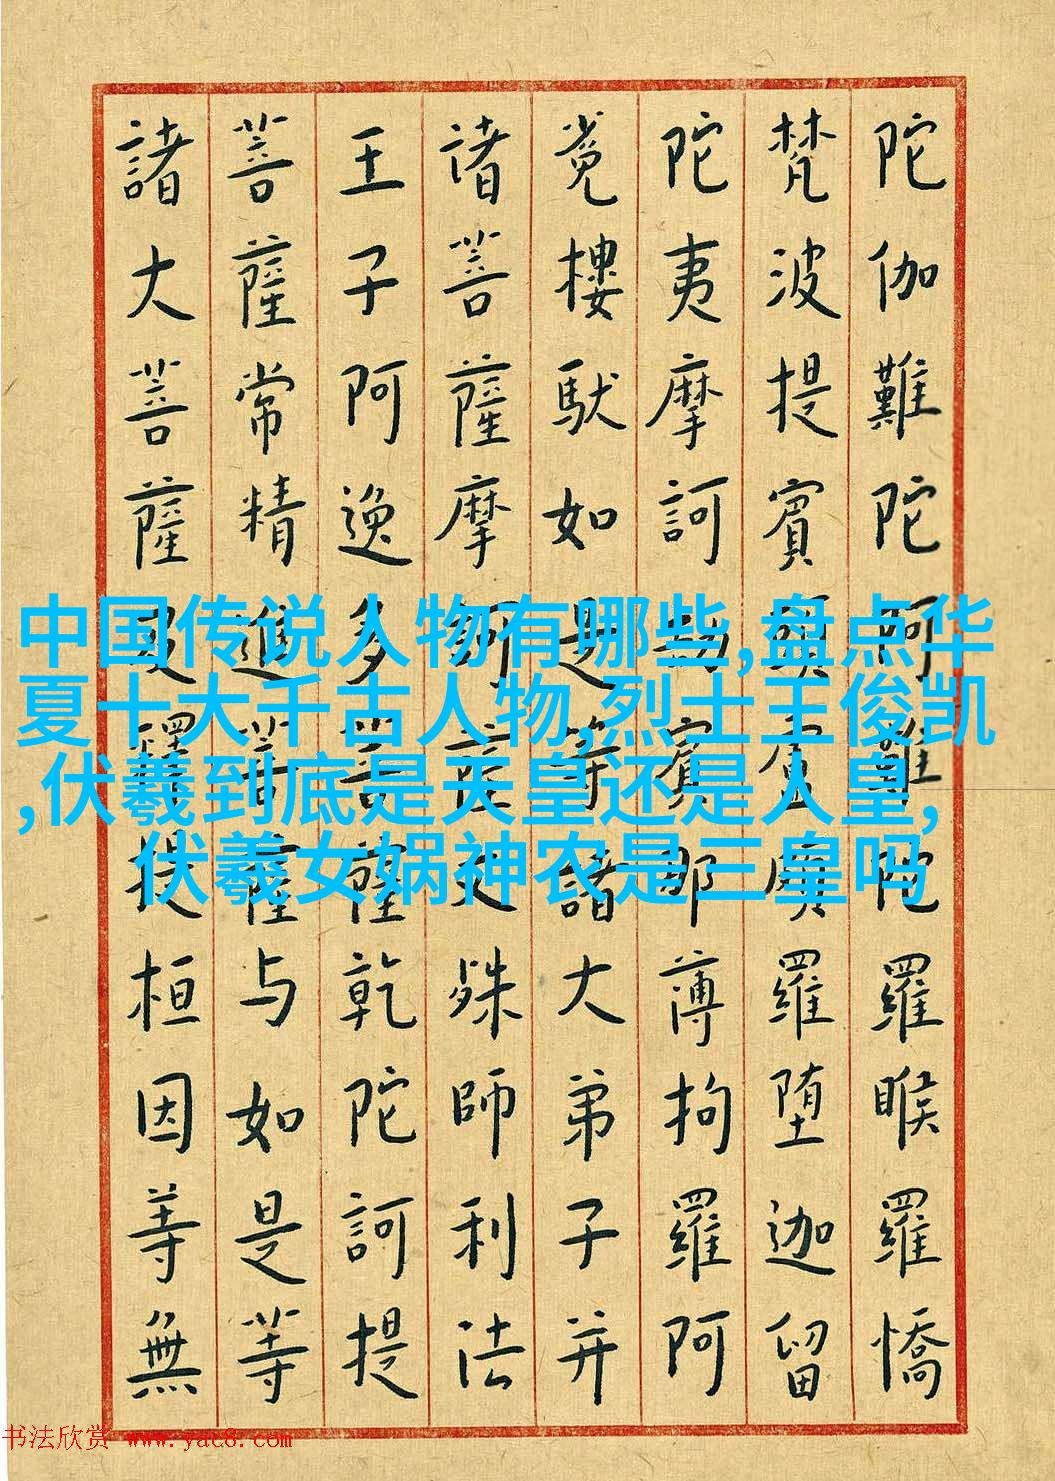 陀伽難陀阿難陀羅睺羅憍
梵波提賓頭盧頗羅堕迦留
陀夷摩訶劫賓那薄拘羅阿
樓馱如是等諸大弟子并
诸菩薩摩訶薩文殊師利法
王子阿逸多菩薩乾陀訶提
菩薩常精進菩薩与如是等
諸大菩薩及釋提桓因等無
中国传说人物有哪些,盘点华
夏十大千古人物,烈士王俊凯
,伏羲到底是天皇还是人皇,
伏羲女娲神农是三皇吗
书法欣赏 www.yac8.com